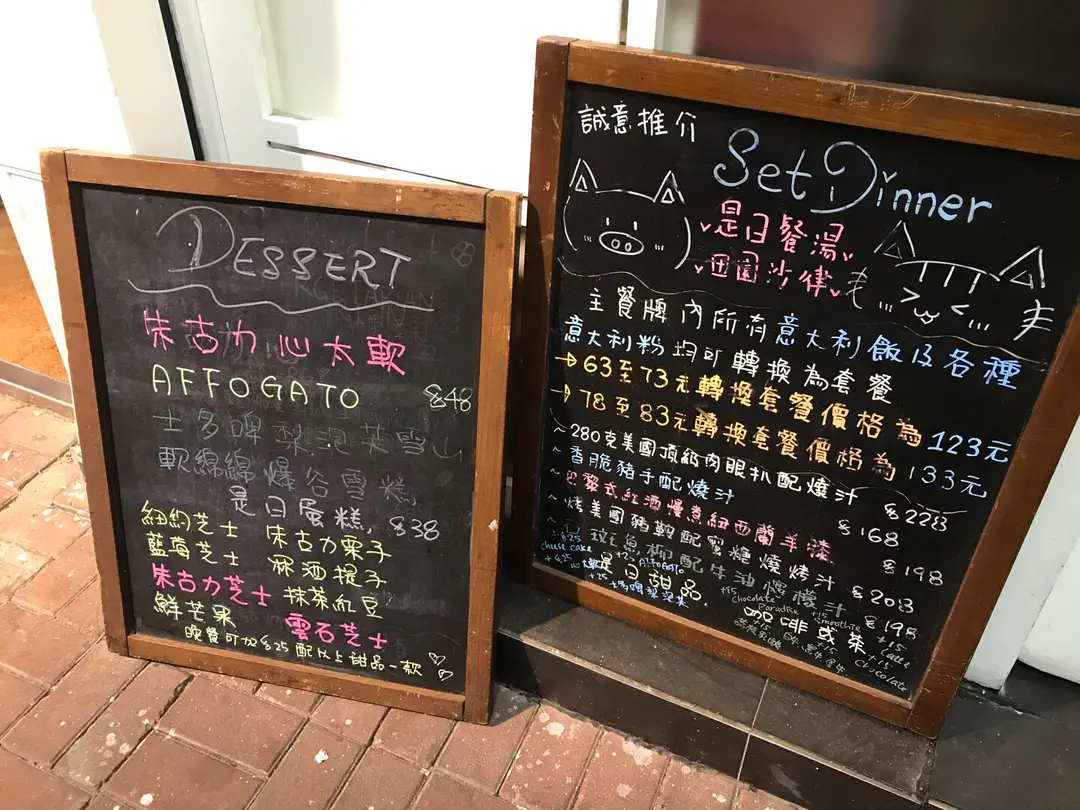 DESSERT
朱古力心太軟
AFFOGATO $48
士多啤梨泡芙雪山
軟綿綿爆谷雪糕,
是日蛋糕, $38
紐約芝士 朱古力栗子
藍莓芝士 冧酒提子
朱古力芝士 抹茶紅豆
鮮芒果 雲石芝士
晚餐可加$25配以上甜品一款
誠意推介
Set Dinner
是日餐湯
田園沙律
主餐牌內所有意大利飯及各種
意大利粉均可轉換為套餐
→63至73元轉換套餐價格為 123元
→78至83元轉換套餐價格為 133元
~280克美國頂級肉眼扒配燒汁 $228
~香脆豬手配燒汁 $168
~巴黎式紅酒慢煮紐西蘭羊膝 $198
~烤美國豬鞍配蜜糖燒烤汁 $208
~石斑魚柳配牛油檸檬汁 $198
是日甜品, 咖啡或茶
+$25 cheese cake
+$25 心太軟
+25 Affogato
+25 士多啤梨泡芙
+15 chocolate paradise
+15 smoothie
+15 coffee
+15 chocolate